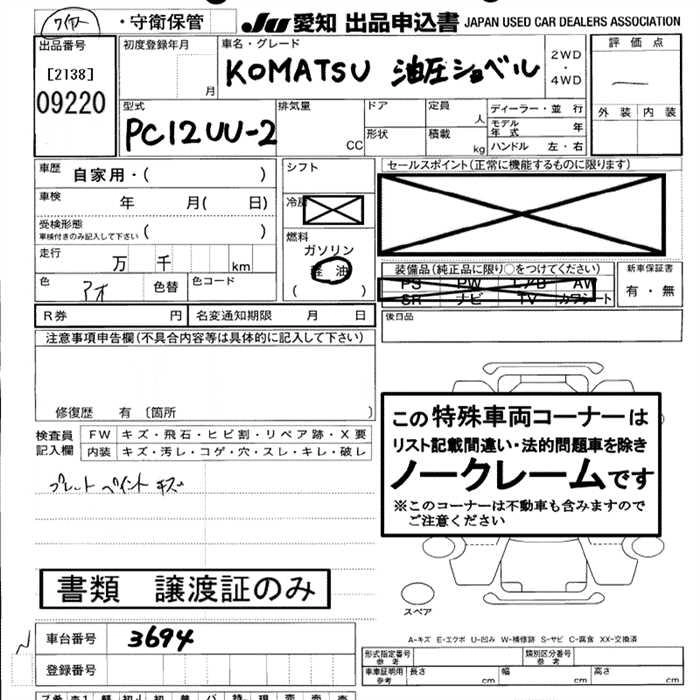 ・守衛保管
JU 愛知 出品申込書 JAPAN USED CAR DEALERS ASSOCIATION
出品番号
[2138]
09220
初度登録年月
月
車名・グレード
KOMATSU 油圧ショベル
2WD
・
4WD
評価点
外装 内装
型式
PC12UU-2
排気量
CC
ドア
形状
定員
人
積載
kg
ディーラー・並行
モデル年式 年
ハンドル 左・右
車歴 自家用・( )
車検 年 月( 日)
受検形態
車検付きのみ記入して下さい ( )
走行 万 千 km
色 アオ 色替 色コード
シフト
冷房
燃料
ガソリン
軽油
( )
セールスポイント(正常に機能するものに限ります)
装備品(純正品に限り○をつけてください)
PS PW エアB AW
SR ナビ TV カワシート
新車保証書
有・無
R券 円 名変通知期限 月 日
後日品
注意事項申告欄(不具合内容等は具体的に記入して下さい)
修復歴 有 〔箇所 〕
検査員記入欄
FW キズ・飛石・ヒビ割・リペア跡・X要
内装 キズ・汚レ・コゲ・穴・スレ・キレ・破レ
プレート ペイント キズ
この特殊車両コーナーは
リスト記載間違い・法的問題車を除き
ノークレームです
※このコーナーは不動車も含みますので
ご注意ください
書類 譲渡証のみ
スペア
A-キズ E-エクボ U-凹み W-補修跡 S-サビ C-腐食 XX-交換済
車台番号 3694
登録番号
形式指定番号
参考
類別区分番号
参考
車庫証明用
参考
長さ cm 幅 cm 高さ cm